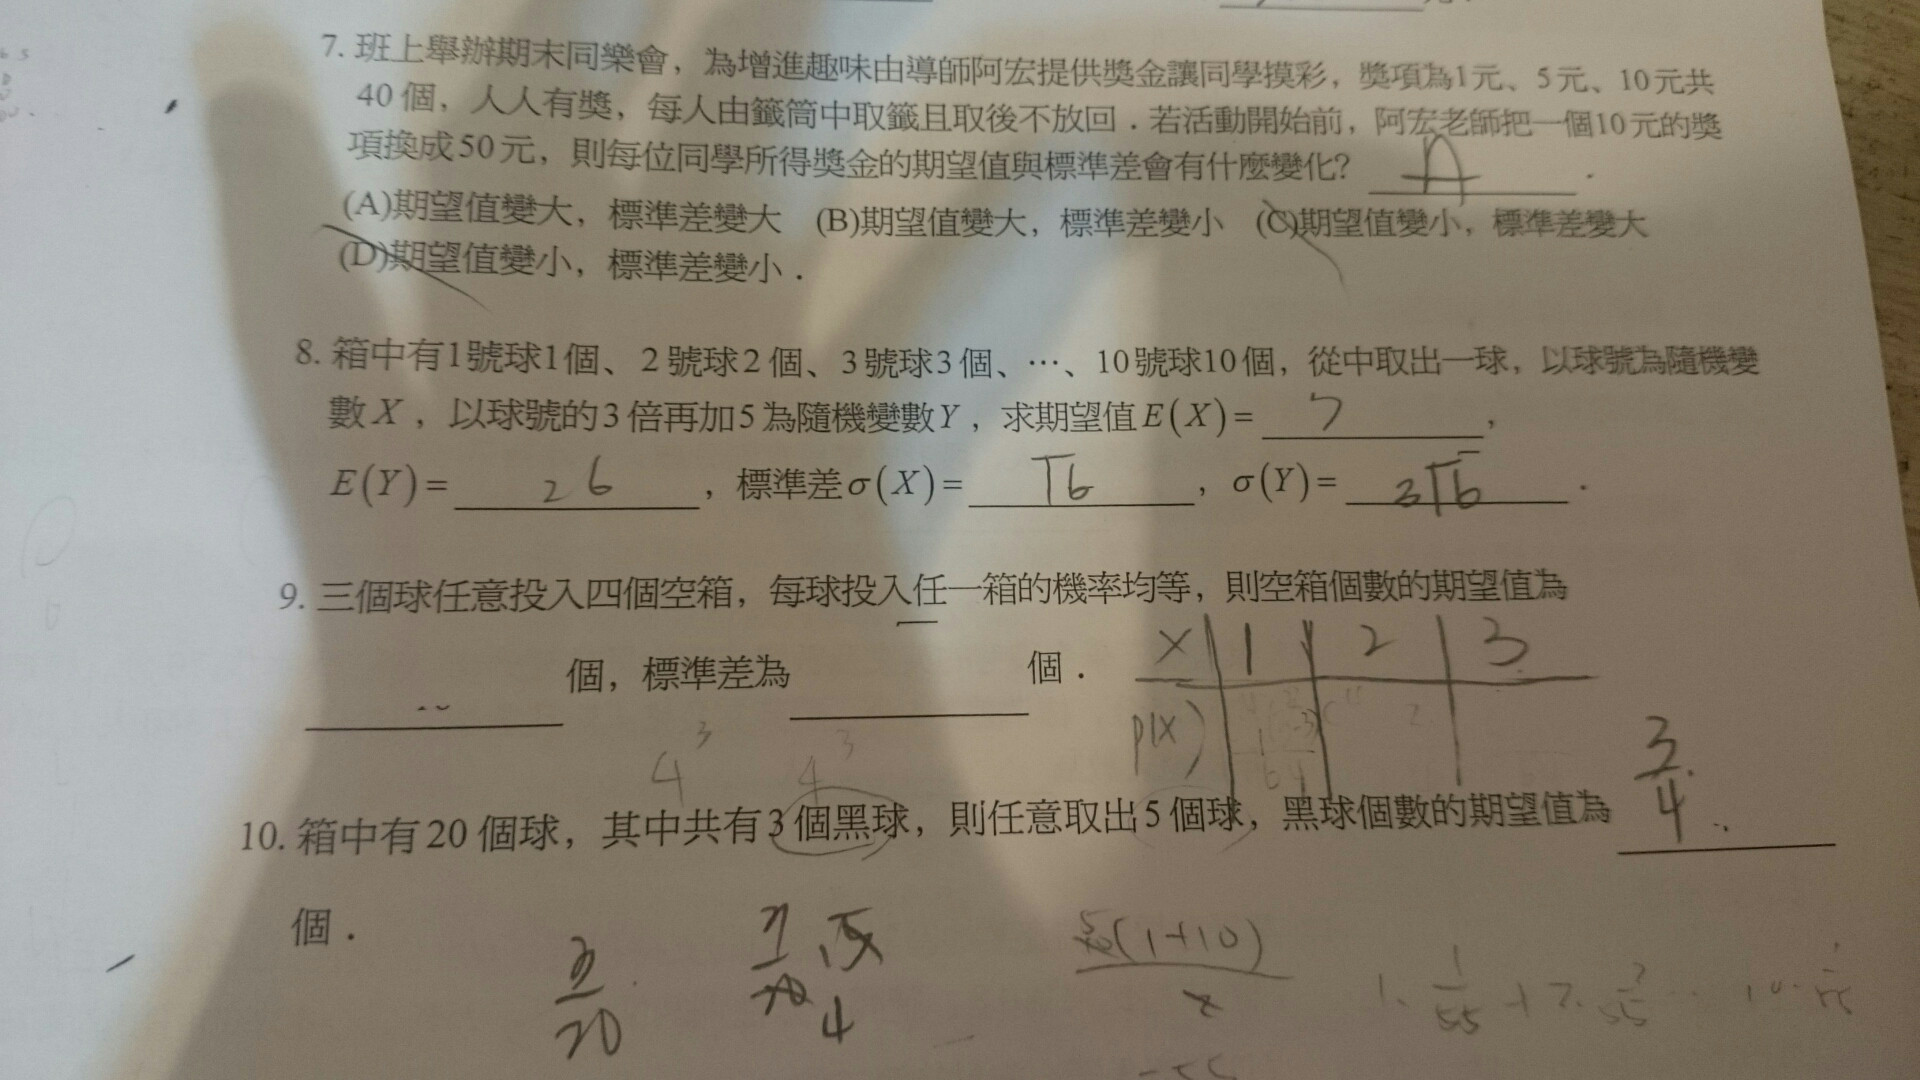 7. 班上舉辦期末同樂會，為增進趣味由導師阿宏提供獎金讓同學摸彩，獎項為1元、5元、10元共
40個，人人有獎，每人由籤筒中取籤且取後不放回．若活動開始前，阿宏老師把一個10元的獎
項換成50元，則每位同學所得獎金的期望值與標準差會有什麼變化? A .
(A)期望值變大，標準差變大 (B)期望值變大，標準差變小 (C)期望值變小，標準差變大
(D)期望值變小，標準差變小．
8. 箱中有1號球1個、2號球2個、3號球3個、…、10號球10個，從中取出一球，以球號為隨機變
數X，以球號的3倍再加5為隨機變數Y，求期望值E(X)= 7 ，
E(Y)= 26 ，標準差σ(X)= √6 ，σ(Y)= 3√6 .
9. 三個球任意投入四個空箱，每球投入任一箱的機率均等，則空箱個數的期望值為
個，標準差為 個．
X 1 2 3
P(X)
4³ 4³
10. 箱中有20個球，其中共有3個黑球，則任意取出5個球，黑球個數的期望值為 3/4
個．
3/20
5(1+10)